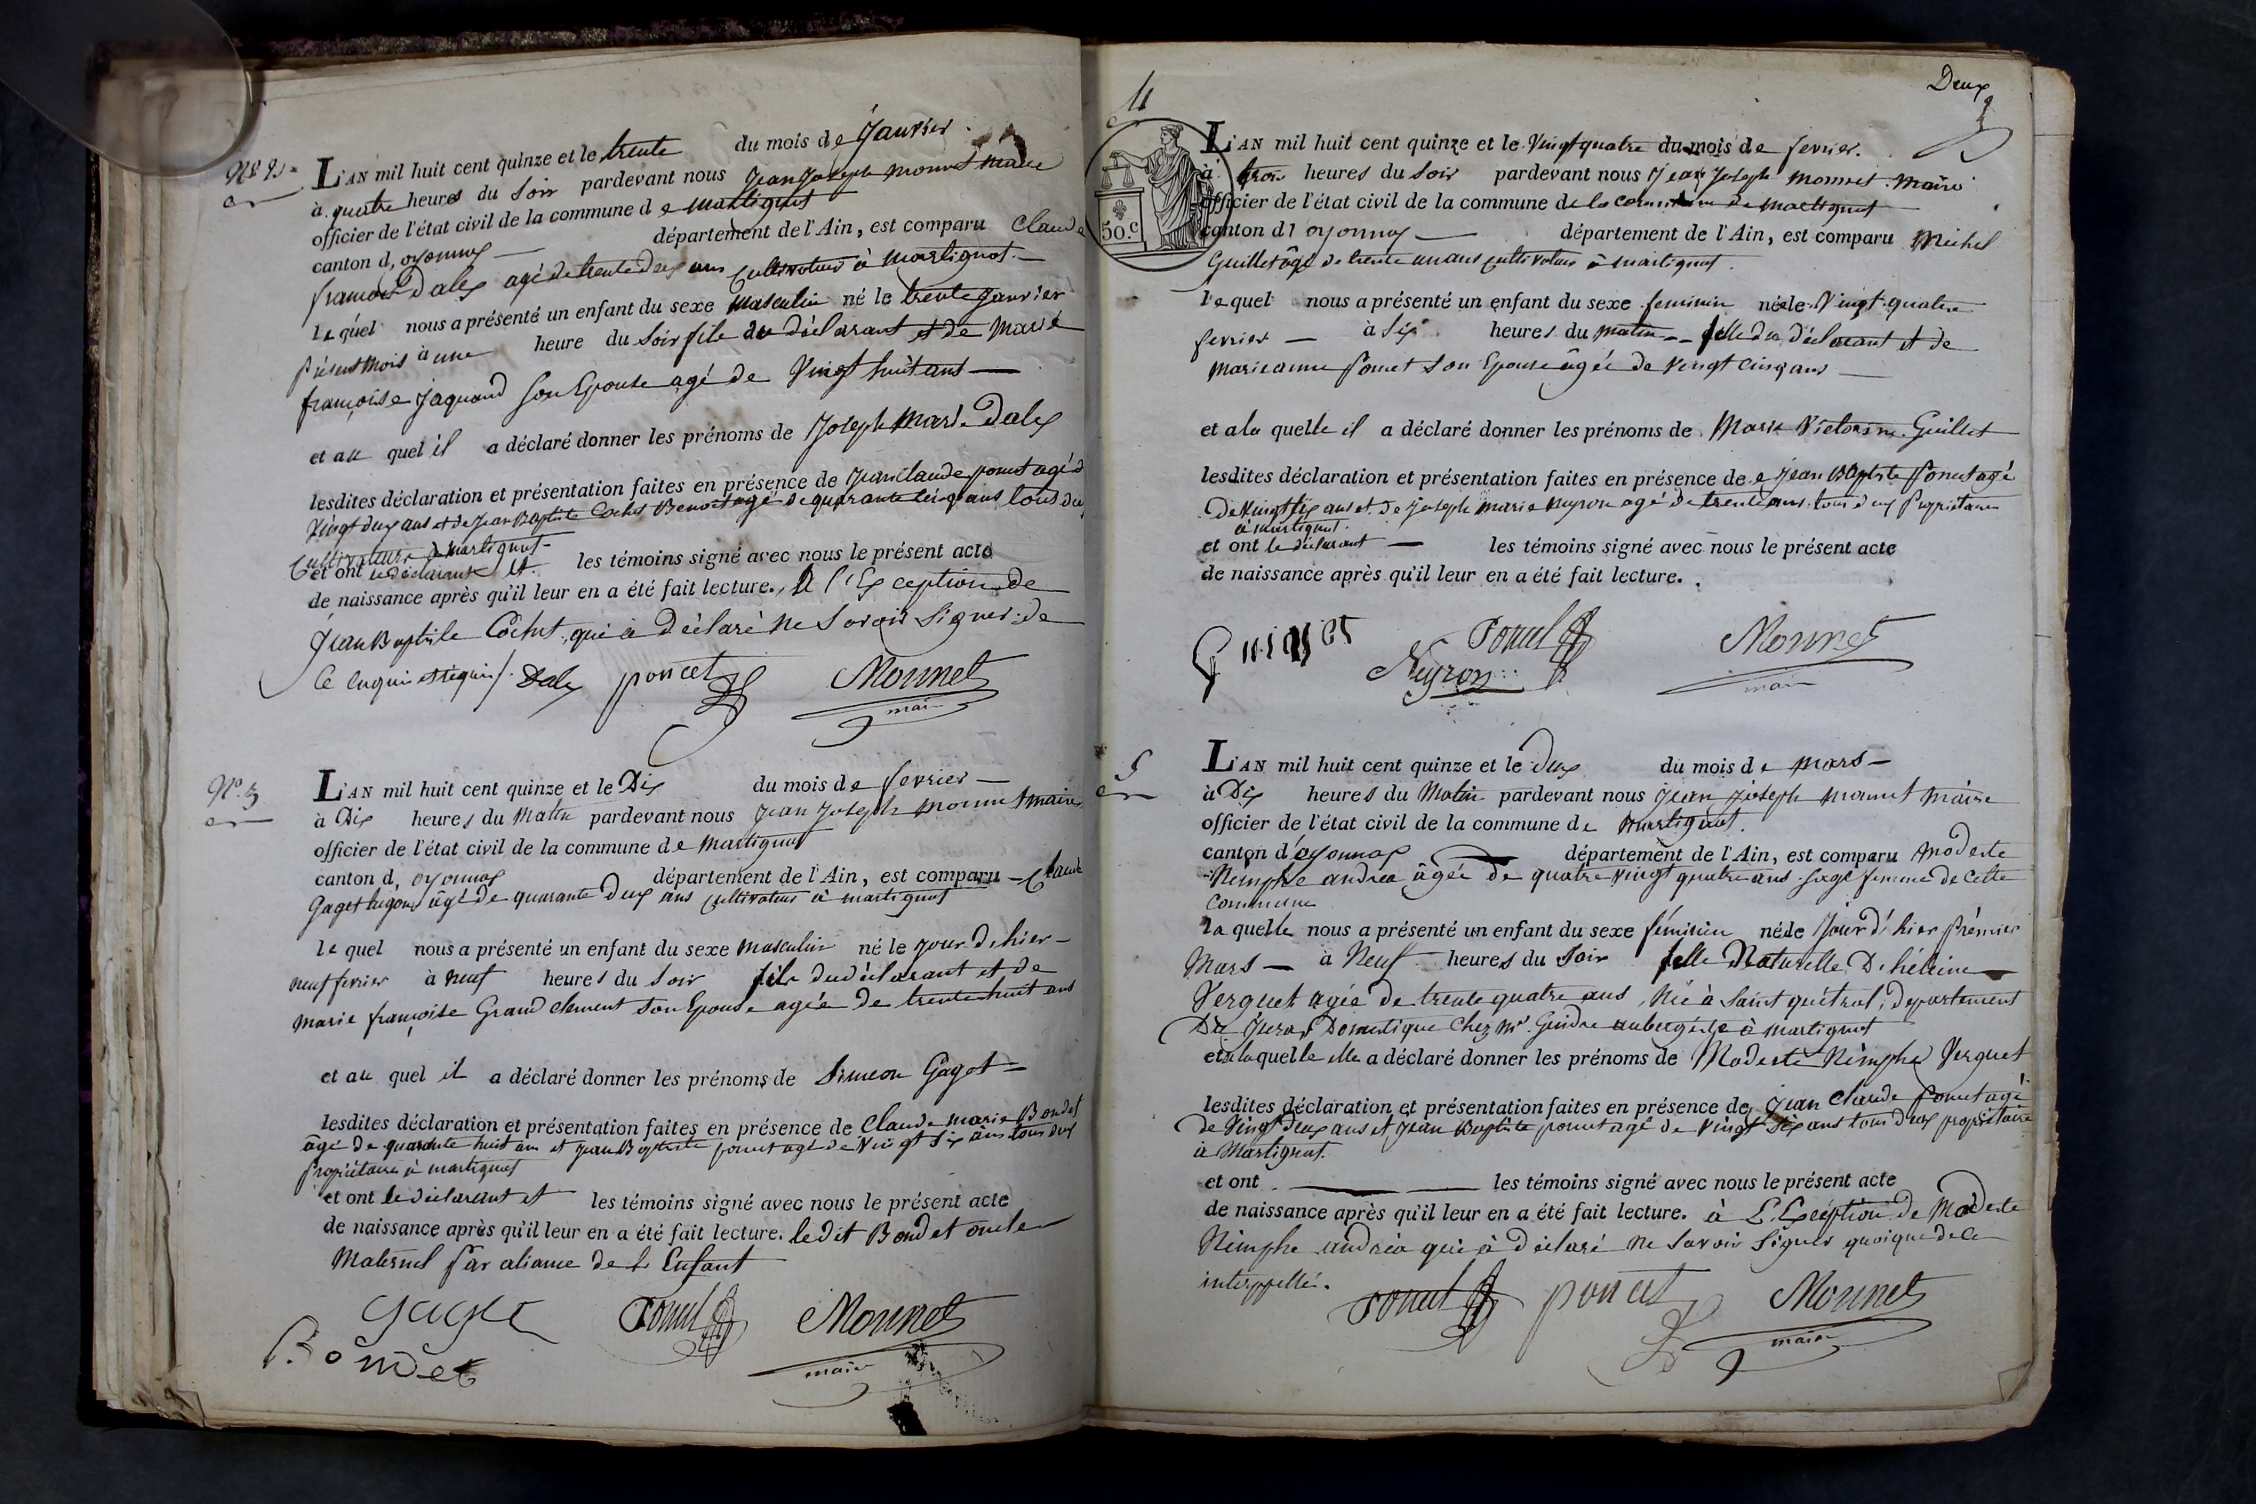 N° 2.
L'AN mil huit cent quinze et le trente du mois de Janvier
à quatre heures du Soir pardevant nous Jean Joseph Monnet Maire
officier de l'état civil de la commune de Martignat
canton d, oyonnax département de l'Ain, est comparu Claude
françois Dalex agé de trente deux ans Cultivateur à Martignat.
lequel nous a présenté un enfant du sexe masculin né le trente Janvier
présent mois à une heure du Soir fils du déclarant et de Marie
françoise Jaquand Son Epouse agé de Vingt huit ans
et au quel il a déclaré donner les prénoms de Joseph Marie Dalex
lesdites déclaration et présentation faites en présence de Jean Claude poncet agé d
Vingt deux ans et de Jean Baptiste Cochet Benoit agé de quarante Cinq ans tous deux
Cultivateurs à Martignat
et ont le déclarant et les témoins signé avec nous le présent acte
de naissance après qu'il leur en a été fait lecture. A l'Exception de
Jean Baptiste Cochet qui à déclaré ne Savoir Signer de
Ce enquis et requis /. Dalex poncet Monnet
maire
N° 3
L'AN mil huit cent quinze et le Dix du mois de fevrier
à Dix heures du Matin pardevant nous Jean Joseph Monnet maire
officier de l'état civil de la commune de Martignat
canton d, oyonnax département de l'Ain, est comparu Claude
Gaget hugon âgé de quarante Deux ans Cultivateur à martignat
lequel nous a présenté un enfant du sexe masculin né le Jour d'hier
neuf fevrier à neuf heures du Soir fils du déclarant et de
Marie françoise Grand Clement Son Epouse agée de trente huit ans
et au quel il a déclaré donner les prénoms de Simeon Gaget
lesdites déclaration et présentation faites en présence de Claude Marie Bondet
âgé de quarante huit ans et Jean Baptiste poncet agé de Vingt Six ans tous deux
propriétaires à martignat
et ont le déclarant et les témoins signé avec nous le présent acte
de naissance après qu'il leur en a été fait lecture. le dit Bondet oncle
Maternel par aliance de L'Enfant
gaget Poncet Monnet
Bondet maire
Deux
4
L'AN mil huit cent quinze et le Vingt quatre du mois de fevrier.
à trois heures du Soir pardevant nous Jean Joseph Monnet Maire
officier de l'état civil de la commune de la commune de Martignat
canton d'oyonnax département de l'Ain, est comparu Michel
Guillet âgé de trente un ans Cultivateur à Martignat.
lequel nous a présenté un enfant du sexe feminin née le Vingt quatre
fevrier à Six heures du matin fille du déclarant et de
Marie anne Poncet Son Epouse âgée de Vingt Cinq ans
et a la quelle il a déclaré donner les prénoms de Marie Victorine Guillet
lesdites déclaration et présentation faites en présence de Jean Baptiste Poncet agé
De Vingt Six ans et de Joseph Marie Neyron agé de trente ans tous deux Propriétaires
à Martignat.
et ont le déclarant les témoins signé avec nous le présent acte
de naissance après qu'il leur en a été fait lecture.
50.c
Poncet Monnet
Neyron maire
5
L'AN mil huit cent quinze et le deux du mois de Mars
à Dix heures du Matin pardevant nous Jean Joseph Monnet Maire
officier de l'état civil de la commune de Martignat.
canton d'oyonnax département de l'Ain, est comparu Modeste
Nimphe andréa âgée de quatre Vingt quatre ans Sage femme de Cette
Commune
la quelle nous a présenté un enfant du sexe féminin née le Jour d'hier Premier
Mars à Neuf heures du Soir fille Naturelle D'héleine
Verguet agée de trente quatre ans, Née à Saint département
Du Jura, Domestique Chez Mr. Guidre aubergiste à Martignat
et a la quelle elle a déclaré donner les prénoms de Modeste Nimphe Verguet
lesdites déclaration et présentation faites en présence de Jean Claude Poncet agé
de Vingt Deux ans et Jean Baptiste poncet agé de Vingt Six ans tous deux propriétaire
à Martignat.
et ont les témoins signé avec nous le présent acte
de naissance après qu'il leur en a été fait lecture. à L'Exception de Modeste
Nimphe andréa qui à déclaré ne Savoir Signer quoique de Ce
interppellée.
Poncet poncet Monnet
maire